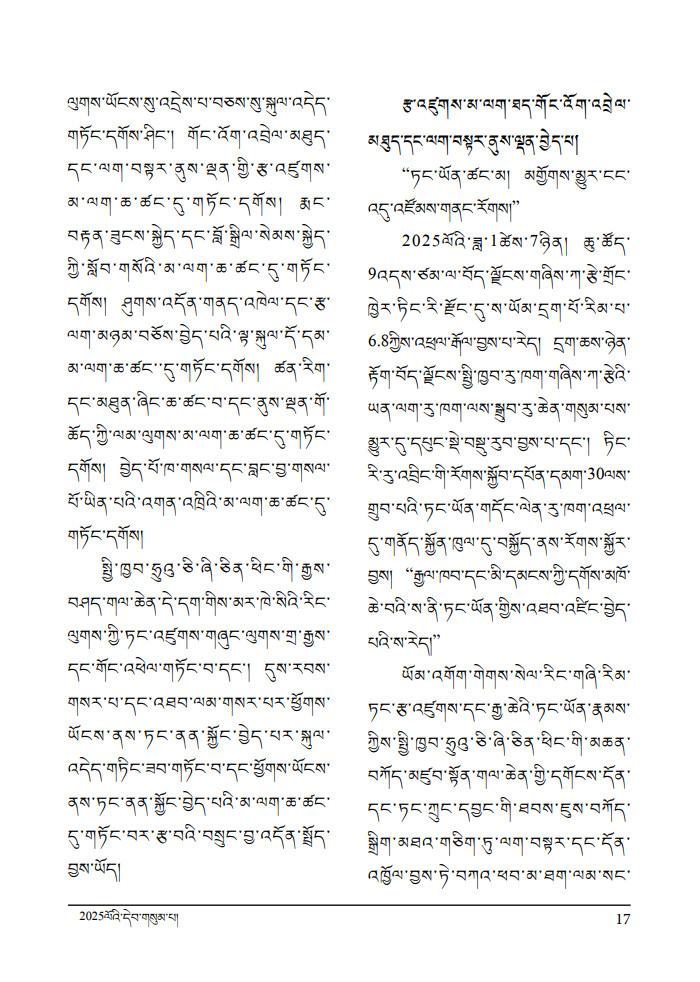 ལུགས་ཡོངས་སུ་འདྲེས་པ་བཅས་སུ་སྐུལ་འདེད་
གཏོང་དགོས་ཤིང་། གོང་འོག་འབྲེལ་མཐུད་
དང་ལག་བསྟར་ནུས་ལྡན་གྱི་རྩ་འཛུགས་
མ་ལག་ཆ་ཚང་དུ་གཏོང་དགོས། རྨང་
བརྟན་ཟུངས་སྐྱེད་དང་བློ་སྒྲིལ་སེམས་སྐྱེད་
ཀྱི་སློབ་གསོའི་མ་ལག་ཆ་ཚང་དུ་གཏོང་
དགོས། ཤུགས་འདོན་གནད་འཁེལ་དང་རྩ་
ལག་མཉམ་བཅོས་བྱེད་པའི་ལྟ་སྐུལ་དོ་དམ་
མ་ལག་ཆ་ཚང་་དུ་གཏོང་དགོས། ཚན་རིག་
དང་མཐུན་ཞིང་ཆ་ཚང་བ་དང་ནུས་ལྡན་གོ་
ཆོད་ཀྱི་ལམ་ལུགས་མ་ལག་ཆ་ཚང་དུ་གཏོང་
དགོས། བྱེད་པོ་ཁ་གསལ་དང་བླང་བྱ་གསལ་
པོ་ཡིན་པའི་འགན་འཁྲིའི་མ་ལག་ཆ་ཚང་དུ་
གཏོང་དགོས།
སྤྱི་ཁྱབ་ཧྲུའུ་ཅི་ཞི་ཅིན་ཕིང་གི་རྒྱས་
བཤད་གལ་ཆེན་དེ་དག་གིས་མར་ཁེ་སིའི་རིང་
ལུགས་ཀྱི་ཏང་འཛུགས་གཞུང་ལུགས་གྲ་རྒྱས་
དང་གོང་འཕེལ་གཏོང་བ་དང་། དུས་རབས་
གསར་པ་དང་འཐབ་ལམ་གསར་པར་ཕྱོགས་
ཡོངས་ནས་ཏང་ནན་སྐྱོང་བྱེད་པར་སྐུལ་
འདེད་གཏིང་ཟབ་གཏོང་བ་དང་ཕྱོགས་ཡོངས་
ནས་ཏང་ནན་སྐྱོང་བྱེད་པའི་མ་ལག་ཆ་ཚང་
དུ་གཏོང་བར་རྩ་བའི་བསྲུང་བྱ་འདོན་སྤྲོད་
བྱས་ཡོད།
རྩ་འཛུགས་མ་ལག་ཐད་གོང་འོག་འབྲེལ་
མཐུད་དང་ལག་བསྟར་ནུས་ལྡན་བྱེད་པ།
“ཏང་ཡོན་ཚང་མ། མགྱོགས་མྱུར་ངང་
འདུ་འཛོམས་གནང་རོགས།”
2025ལོའི་ཟླ་1ཚེས་7ཉིན། ཆུ་ཚོད་
9འདས་ཙམ་ལ་བོད་ལྗོངས་གཞིས་ཀ་རྩེ་གྲོང་
ཁྱེར་ཏིང་རི་རྫོང་དུ་ས་ཡོམ་དྲག་པོ་རིམ་པ་
6.8ཀྱིས་འཕྲལ་རྒོལ་བྱས་པ་རེད། དྲག་ཆས་ཉེན་
རྟོག་བོད་ལྗོངས་སྤྱི་ཁྱབ་རུ་ཁག་གཞིས་ཀ་རྩེའི་
ཡན་ལག་རུ་ཁག་ལས་སྒྲུབ་རུ་ཆེན་གསུམ་པས་
མྱུར་དུ་དཔུང་སྡེ་བསྡུ་རུབ་བྱས་པ་དང་། ཏིང་
རི་རུ་འབྲིང་གི་རོགས་སྐྱོབ་དཔོན་དམག་30ལས་
གྲུབ་པའི་ཏང་ཡོན་གདོང་ལེན་རུ་ཁག་འཕྲལ་
དུ་གནོད་སྐྱོན་ཁུལ་དུ་བསྐྱོད་ནས་རོགས་སྐྱོར་
བྱས། “རྒྱལ་ཁབ་དང་མི་དམངས་ཀྱི་དགོས་མཁོ་
ཆེ་བའི་ས་ནི་ཏང་ཡོན་གྱིས་འཐབ་འཛིང་བྱེད་
པའི་ས་རེད།”
ཡོམ་འགོག་གེགས་སེལ་རིང་གཞི་རིམ་
ཏང་རྩ་འཛུགས་དང་རྒྱ་ཆེའི་ཏང་ཡོན་རྣམས་
ཀྱིས་སྤྱི་ཁྱབ་ཧྲུའུ་ཅི་ཞི་ཅིན་ཕིང་གི་མཆན་
བཀོད་མཛུབ་སྟོན་གལ་ཆེན་གྱི་དགོངས་དོན་
དང་ཏང་ཀྲུང་དབྱང་གི་ཐབས་ཇུས་བཀོད་
སྒྲིག་མཐའ་གཅིག་ཏུ་ལག་བསྟར་དང་དོན་
འཁྱོལ་བྱས་ཏེ་བཀའ་ཕབ་མ་ཐག་ལམ་སང་
2025ལོའི་དེབ་གསུམ་པ།
17